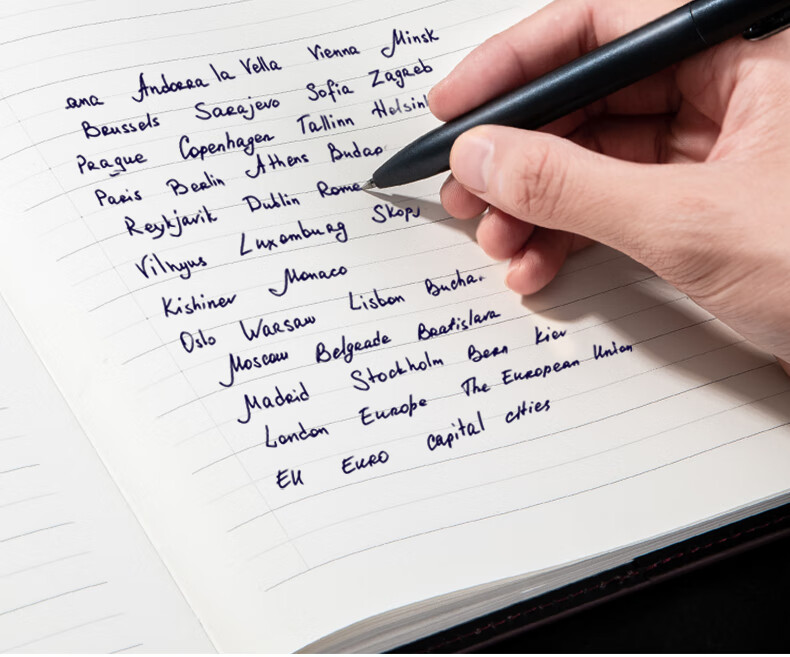 ana Andorra la Vella Vienna Minsk
Brussels Sarajevo Sofia Zagreb
Prague Copenhagen Tallinn Helsink
Paris Berlin Athens Budap
Reykjavik Dublin Rome
Vilnyus Luxemburg Skopj
Kishinev Monaco
Oslo Warsaw Lisbon Bucha
Moscow Belgrade Bratislava
Madrid Stockholm Bern Kiev
London Europe The European Union
EU EURO capital cities